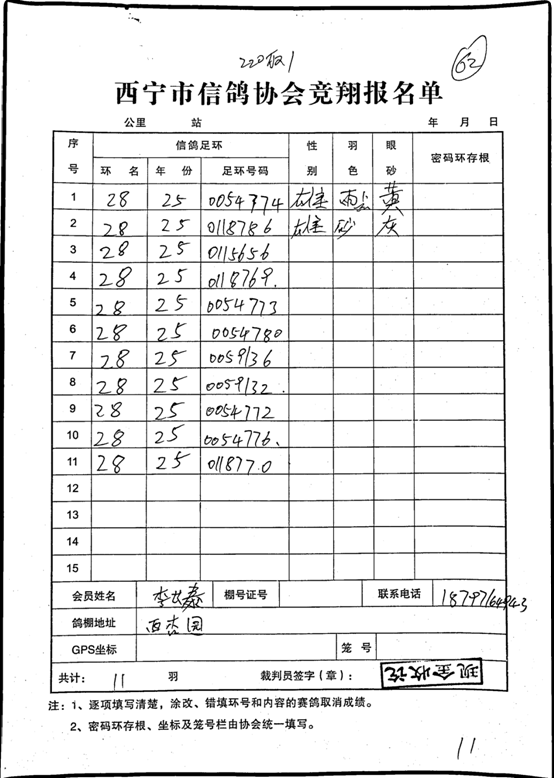 220板1
62
西宁市信鸽协会竞翔报名单
公里 站 年 月 日
序号 信鸽足环 性别 羽色 眼砂 密码环存根
环名 年份 足环号码
1 28 25 0054374 雄 雨点 黄
2 28 25 0118786 雄 砂 灰
3 28 25 0115656
4 28 25 0118769.
5 28 25 0054773
6 28 25 0054780
7 28 25 0059136
8 28 25 0059132.
9 28 25 0054772
10 28 25 0054776、
11 28 25 0118770
12
13
14
15
会员姓名 棚号证号 联系电话
鸽棚地址 西杏园
GPS坐标 笼号
共计: 11 羽 裁判员签字(章): 现金收讫
注:1、逐项填写清楚,涂改、错填环号和内容的赛鸽取消成绩。
2、密码环存根、坐标及笼号栏由协会统一填写。
11